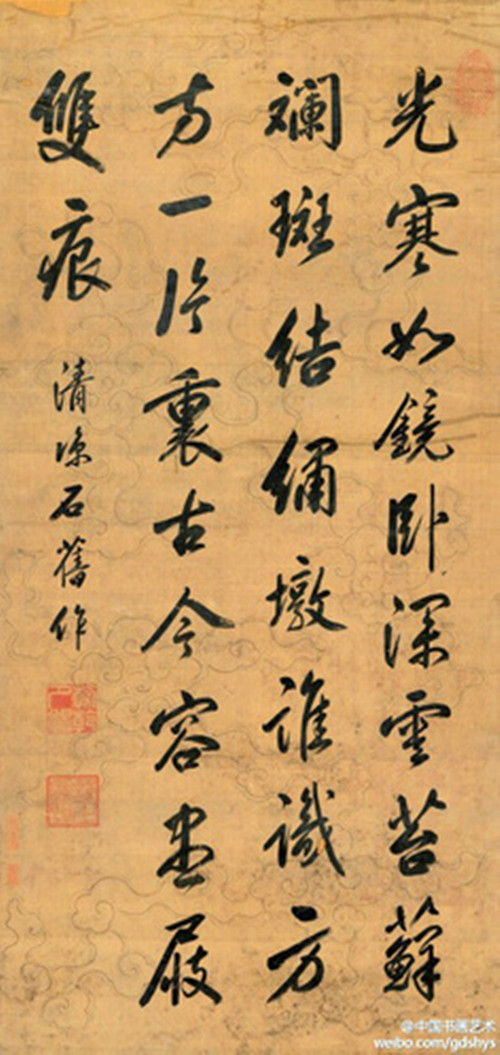 光寒如鏡卧深雲苔蘚
斕斑結繡墩誰識方
方一片裏古今容盡屐
雙痕
清凉石舊作
@中国书画艺术
weibo.com/gdshys